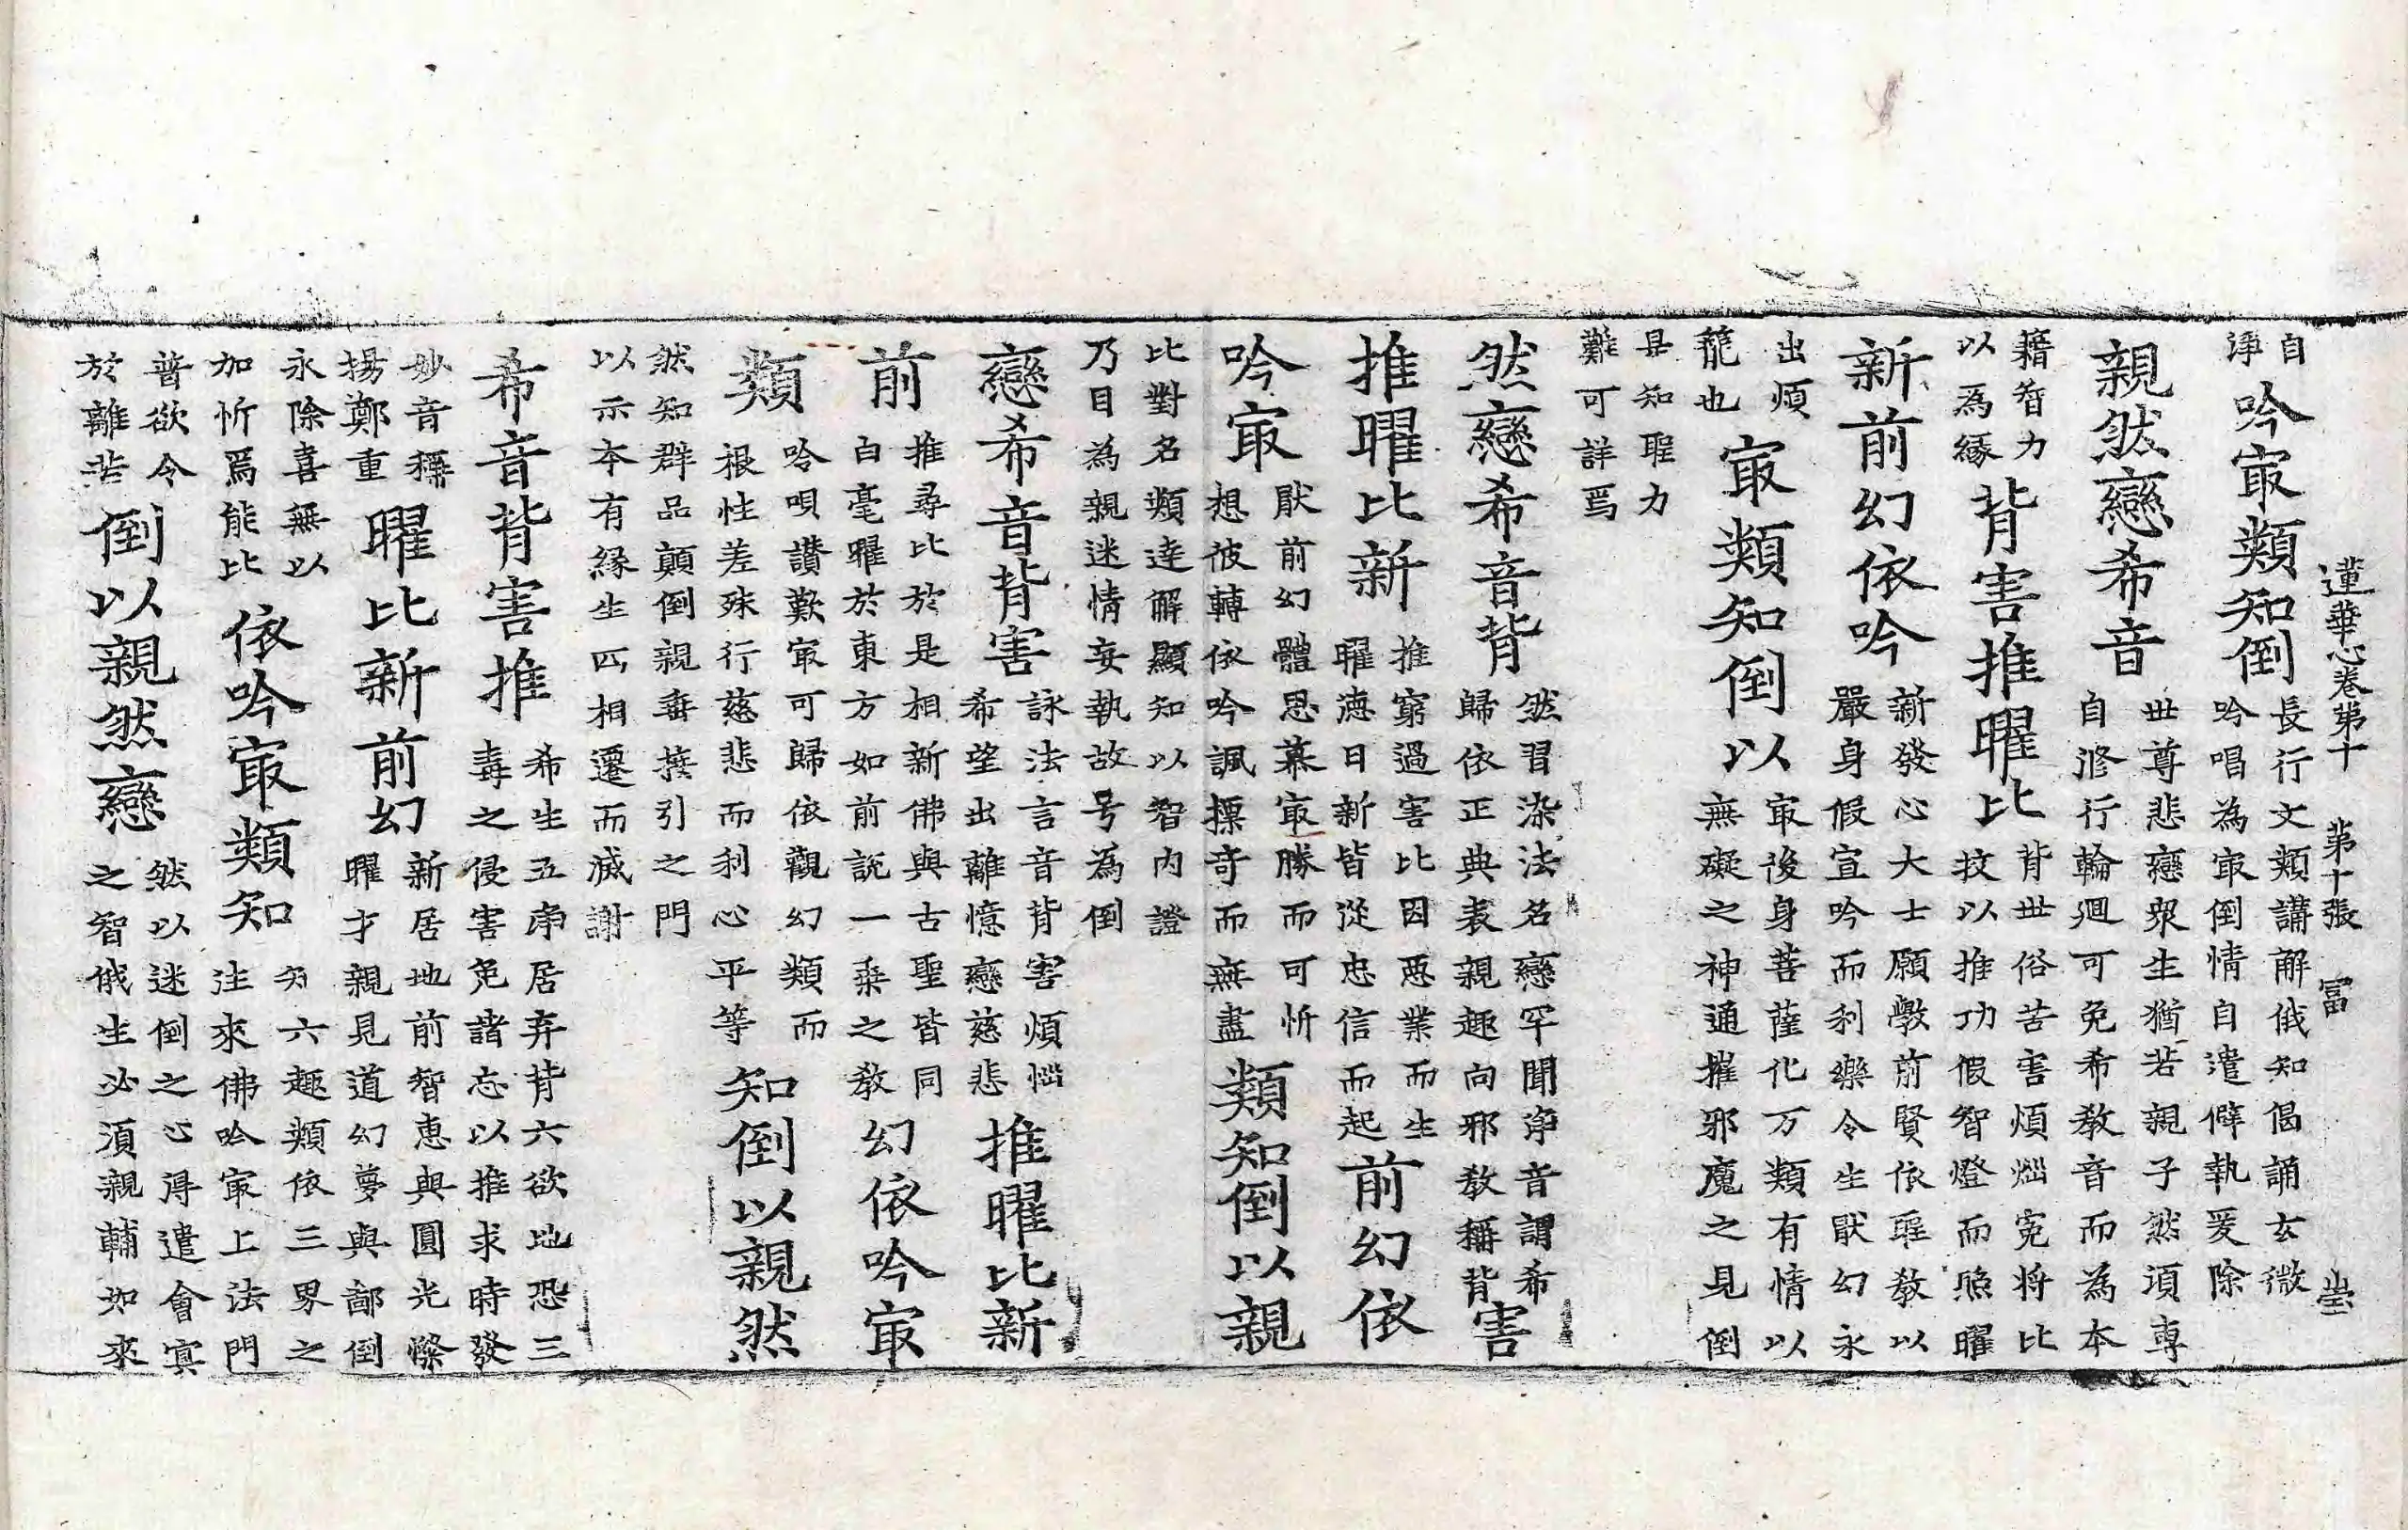 蓮華心卷第十　第十張　冨　崇
自
淨
吟㝡類知倒
長行文類講解俄知偈誦玄微
吟唱為㝡倒情自遣僻執爰除
親然戀希音
世尊悲戀衆生猶若親子然須專
自修行輪迴可免希教音而為本
籍智力
以為緣
背害推曜比
背世俗苦害煩惱寃将比
技以推功假智燈而照曜
新前幻依吟
新發心大士願斆前賢依聖教以
嚴身假宣吟而利樂令生厭幻永
出煩
籠也
㝡類知倒以
㝡後身菩薩化万類有情以
無礙之神通摧邪魔之見倒
是知聖力
難可詳焉
然戀希音背
然習染法名戀罕聞淨音謂希
歸依正典表親趣向邪教稱背
害
推曜比新
推窮過害比因惡業而生
曜德日新皆從忠信而起
前幻依
吟㝡
厭前幻體思慕㝡勝而可忻
想彼轉依吟諷摽奇而無盡
類知倒以親
比對名類達解顯知以智内證
乃目為親迷情妄執故号為倒
戀希音背害
詠法言音背害煩惱
希望出離憶戀慈悲
推曜比新
前
推尋比於是相新佛與古聖皆同
白毫曜於東方如前説一乗之教
幻依吟㝡
類
吟唄讚歎㝡可歸依觀幻類而
根性差殊行慈悲而利心平等
知倒以親然
然知群品顛倒親垂接引之門
以示本有緣生匹相遷而滅謝
希音背害推
希生五淨居弃背六欲地恐三
毒之侵害免諸忘以推求時發
妙音稱
揚鄭重
曜比新前幻
新居地前智惠與圓光
曜才親見道幻夢與鄙倒
永除喜無以
加忻焉能比
依吟㝡類知
知六趣類依三界之
注來佛吟㝡上法門
普欲令
於離苦
倒以親然戀
然以迷倒之心得遣會寘
之智俄生必須親輔如來